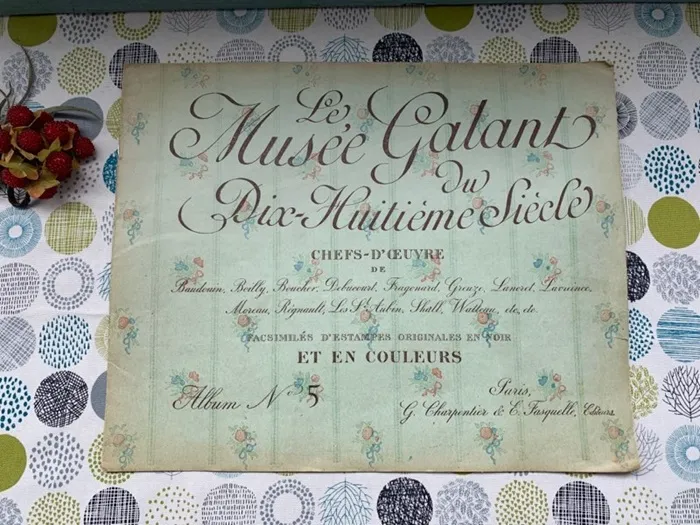 Le
Musée Galant
du
Dix-Huitième Siècle
CHEFS-D'ŒUVRE
DE
Baudouin, Boilly, Boucher, Debucourt, Fragonard, Greuze, Lancret, Lavreince,
Moreau, Régnault, Les St Aubin, Skall, Watteau, etc, etc.
FACSIMILÉS D'ESTAMPES ORIGINALES EN NOIR
ET EN COULEURS
Album No 5
Paris,
G. Charpentier & E. Fasquelle, Editeurs.